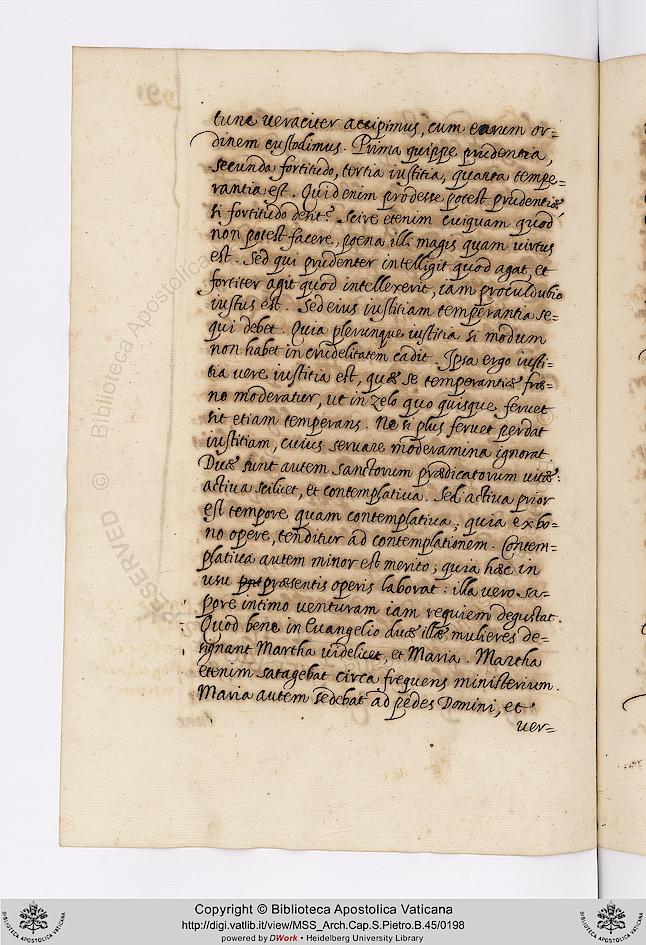 tunc veraciter accipimus, cum earum or=
dinem custodimus. Prima quippe prudentia,
secunda fortitudo, tertia iustitia, quarta tempe=
rantia est. Quid enim prodesse potest prudentiæ
si fortitudo desit? Scire etenim cuiquam quod
non potest facere, poena illi magis quam virtus
est. Sed qui prudenter intelligit quod agat, et
fortiter agit quod intellexerit, iam proculdubio
iustus est. Sed eius iustitiam temperantia se=
qui debet. Quia plerunque iustitia si modum
non habet in crudelitatem cadit. Ipsa ergo iusti-
tia vere iustitia est, quæ se temperantiæ fræ=
no moderatur, ut in zelo quo quisque feruet
sit etiam temperans. Ne si plus feruet perdat
iustitiam, cuius seruare moderamina ignorat.
Duæ sunt autem sanctorum prædicatorum vitæ:
activa scilicet, et contemplativa. Sed activa prior
est tempore, quam contemplativa; quia ex bo=
no opere, tenditur ad contemplationem. Contem=
plativa autem minor est merito; quia hæc in
usu præsentis operis laborat: illa vero sa=
pore intimo venturam iam requiem degustat.
Quod bene in Evangelio duæ illæ mulieres de=
signant Martha videlicet, et Maria. Martha
etenim satagebat circa frequens ministerium.
Maria autem sedebat ad pedes Domini, et
ver=
© Biblioteca Apostolica
RESERVED
Copyright © Biblioteca Apostolica Vaticana
http://digi.vatlib.it/view/MSS_Arch.Cap.S.Pietro.B.45/0198
powered by DWork • Heidelberg University Library